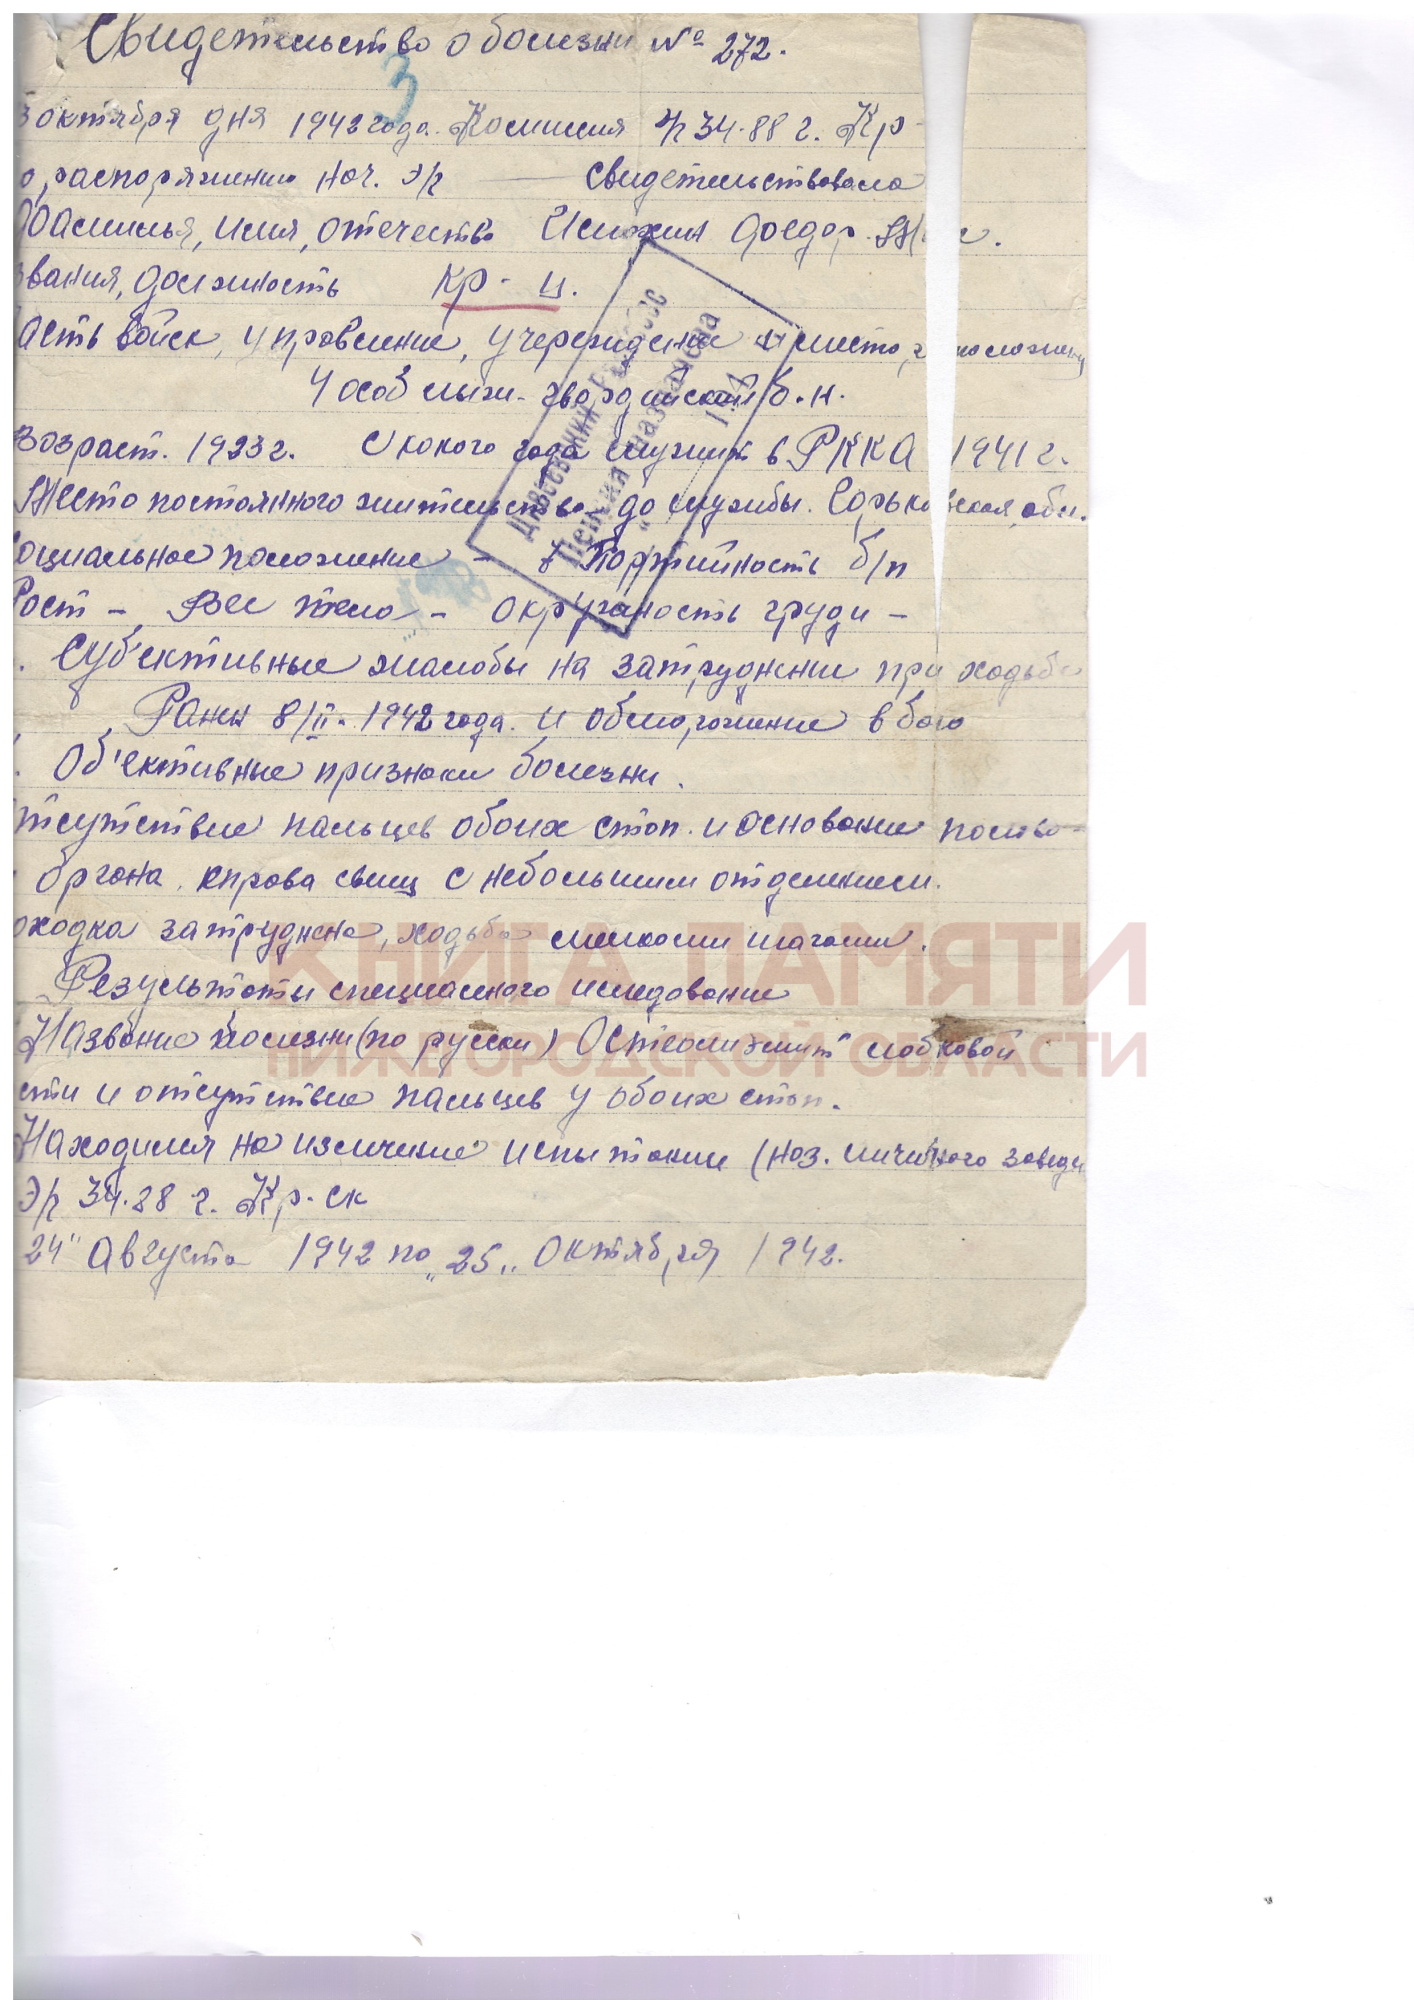 Свидетельство о болезни № 272.
3
октября дня 1942 года. Комиссия э/г 34.88 г. Кр-
распоряжению нач. э/г — свидетельствовала
Фамилья, имя, отечество Федор
звания, должность кр-ц.
асть войск, управление, учереждение и место
4 особ лыжн. гвардийский б.н.
возраст. 1923 г. С кокого года служит в РККА 1941 г.
Место постоянного жительства до службы. Горьковская обл.
социальное положение - Портийность б/п
Рост - Вес тела - округность груди -
Суб'ективные жалобы на затруднение при ходьбе
Ранен 8/II. 1942 года. и обморожение в бою
Об'ективные признаки болезни.
тсутствие пальцев обоих стоп. и основание полово-
органа, справа свищ с небольшим отделением.
оходка затруднена, ходьба мелкоми шагоми.
Результоты специалного иследование
Название болезни (по русски) Остеомиэлит лобковой
сти и отсутствие пальцев у обоих стоп.
Находился на излечение испытонии (наз. личибного заведе
Э/г 34.88 г. Кр-ск
24" Августа 1942 по „25„ октября 1942.
Дивеевский
Пенсия назначена
194
КНИГА ПАМЯТИ
НИЖЕГОРОДСКОЙ ОБЛАСТИ